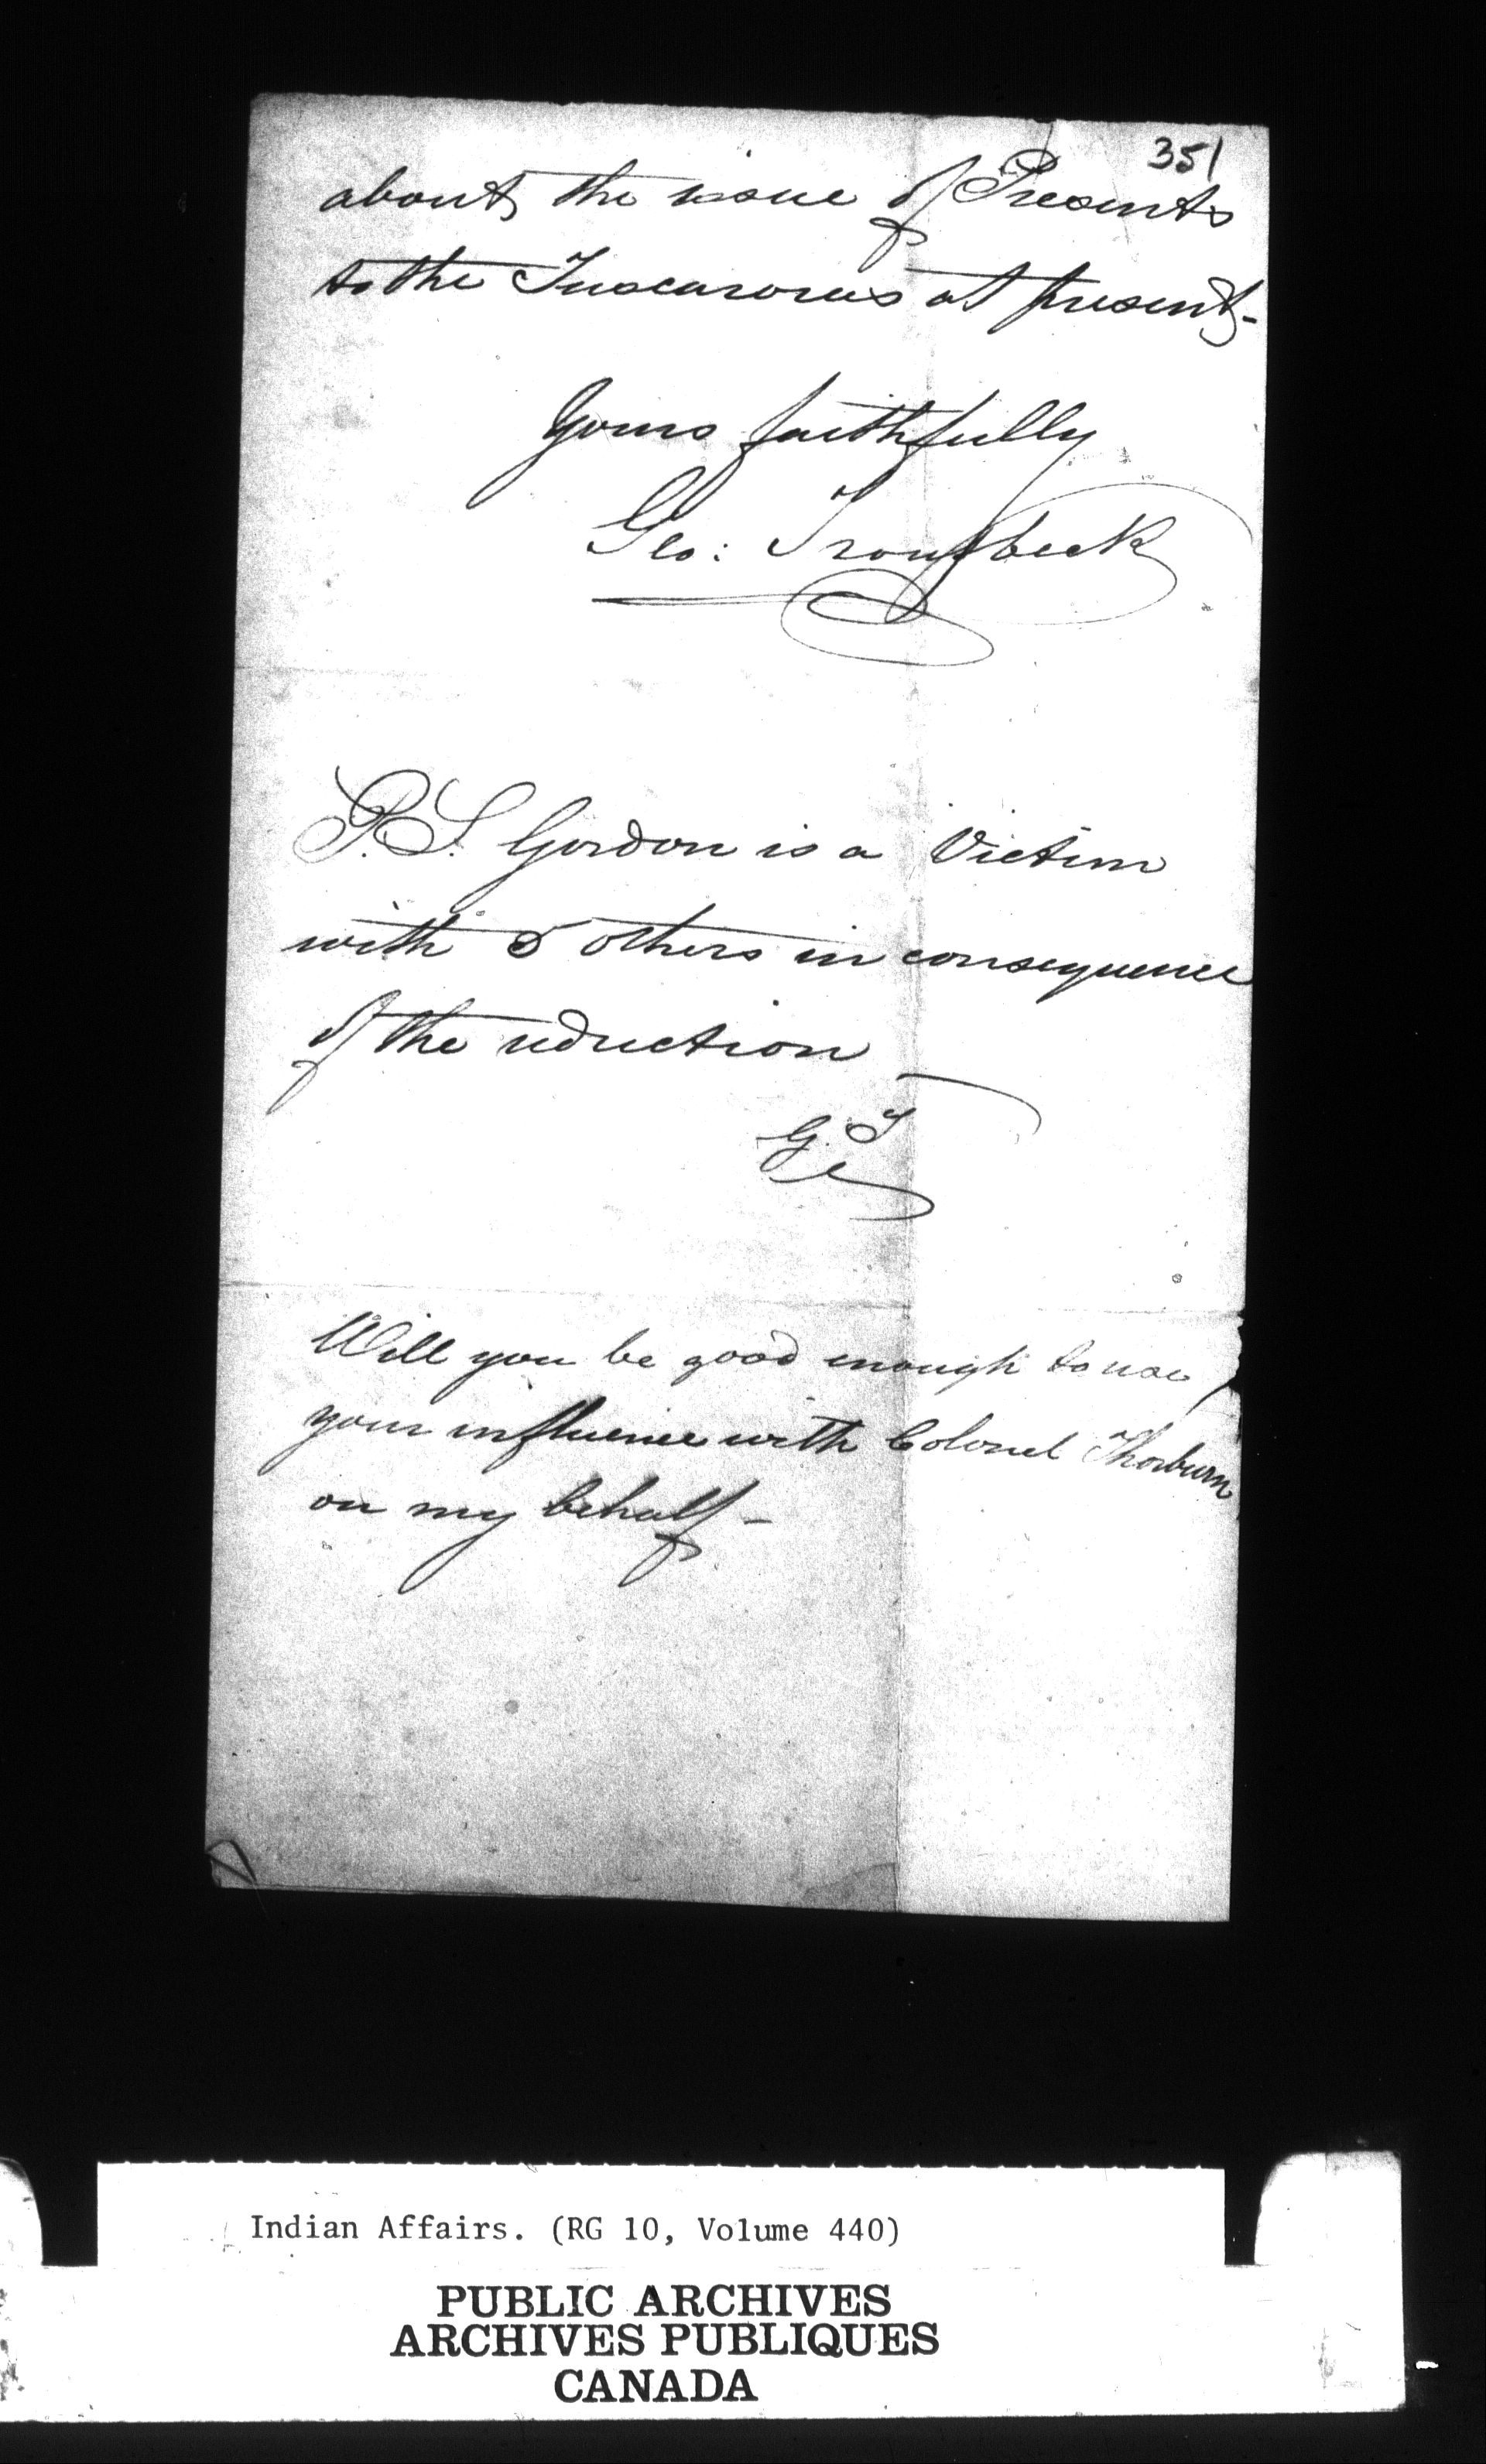 351
about the issue of Presents
to the Tuscaroras at present-
Yours faithfully
Geo: Troupbeck
P.S. Gordon is a Victim
with 5 others in consequence
of the reduction
G. T
Will you be good enough to use
your influence with Colonel Thorburn
on my behalf-
Indian Affairs. (RG 10, Volume 440)
PUBLIC ARCHIVES
ARCHIVES PUBLIQUES
CANADA